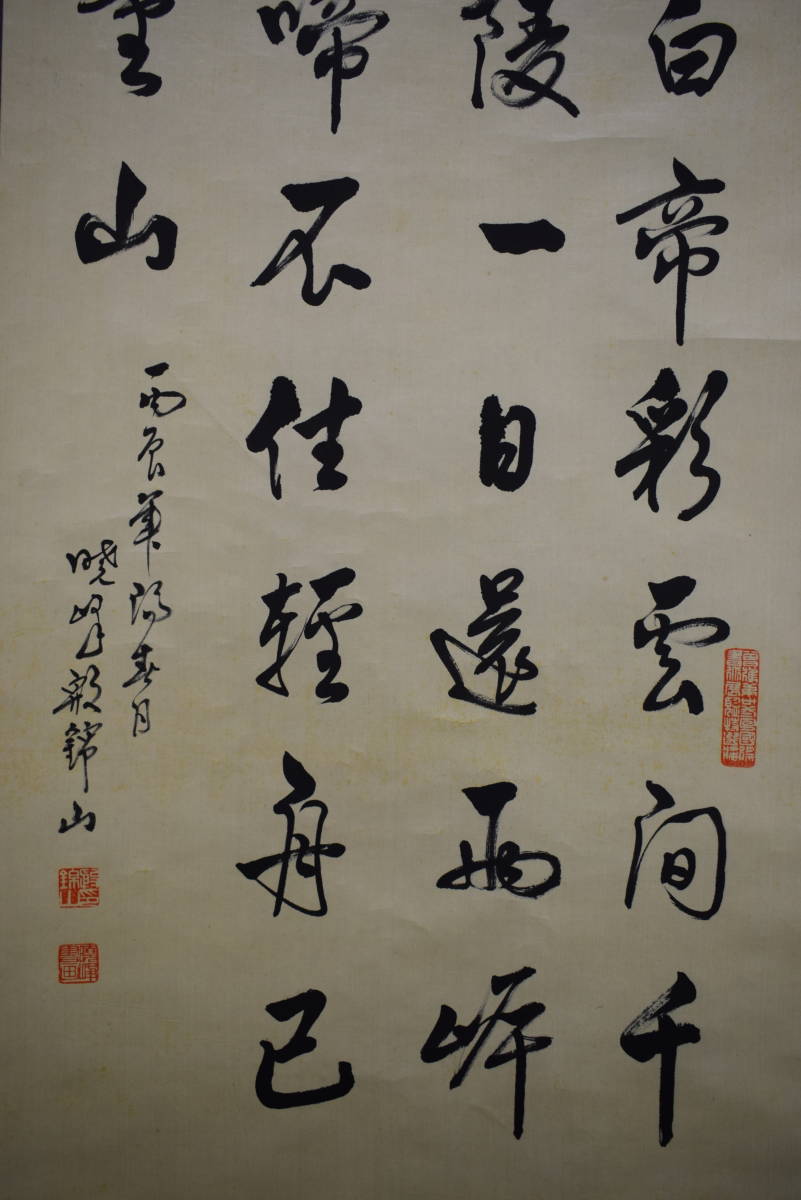 白帝彩雲間千
陵一日還兩岸
啼不住輕舟已
重山
丙辰年陽春月
曉峰殷錦山